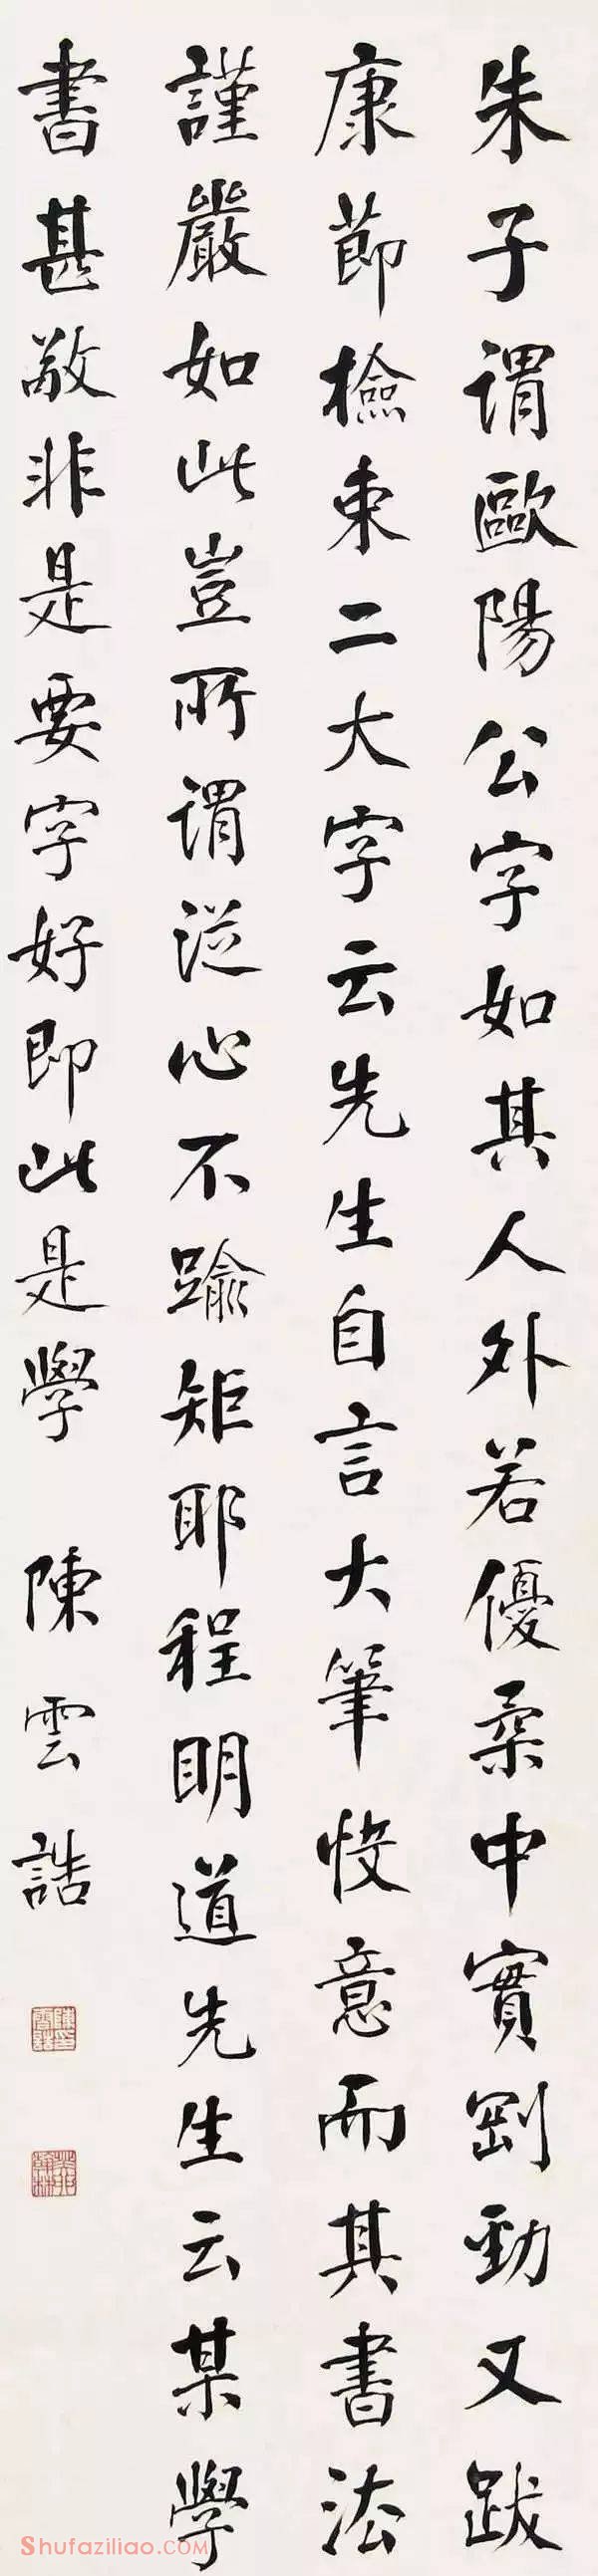 朱子謂歐陽公字如其人外若優柔中實剛勁又跋
康節檢束二大字云先生自言大筆快意而其書法
謹嚴如此豈所謂從心不踰矩耶程明道先生云某學
書甚敬非是要字好即此是學
陳雲誥
Shufaziliao.COM